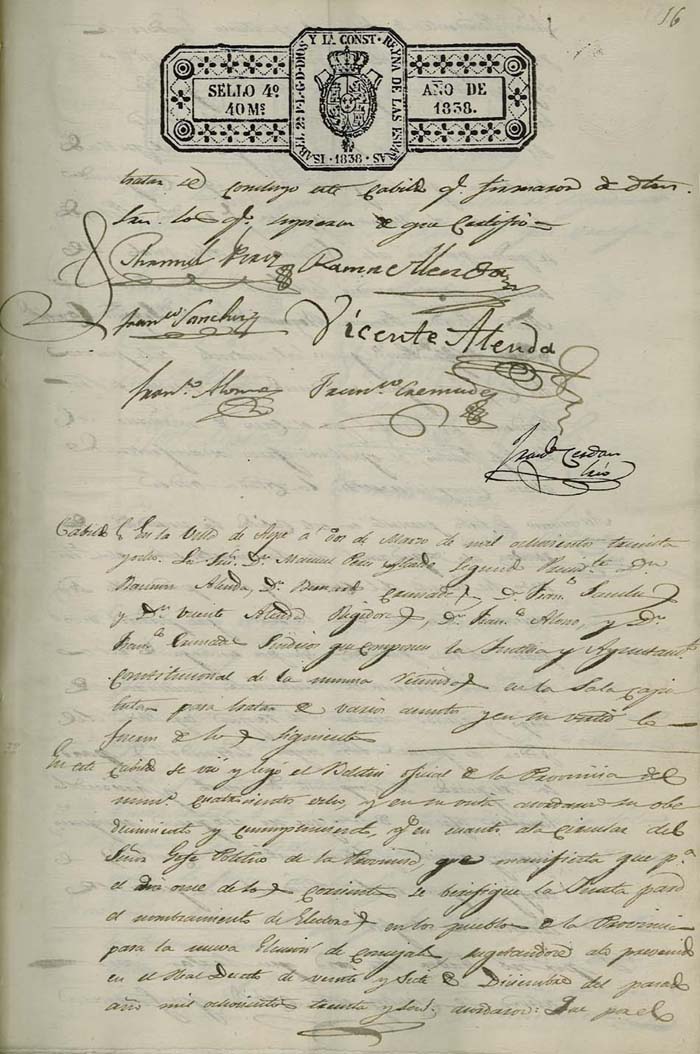 16
ISABEL 2ª P. L. G. D. DIOS Y LA CONST. REYNA DE LAS ESPAÑAS
· 1838 ·
SELLO 4º
40 Ms
AÑO DE
1838.
tratar se concluyo este Cabildo q. firmaron de dhos
Sres. los q. supieron de que Certifico =
Manuel
Ramon Alenda
Franco Sanchez
Vicente Alenda
Franco Alonso
Franco Cremades
Franco Cerdan
Srio
Cabildo En la Villa de Aspe á dos de Marzo de mil ochocientos treinta
y ocho. Los Sres. Dn. Manuel Alcalde Segundo Dn
Ramon Alenda, Dn. Cremades, Dn. Franco Sanchez
y Dn. Vicente Alenda Regidores, Dn. Franco Alonso, y Dn.
Franco Cremades Sindicos que componen la Justicia y Ayuntamto
Constitucional de la misma reunidos en la Sala Capi
tular para tratar de varios asuntos y en su virtud lo
hicieron de los siguientes
En este Cabildo se vió y leyó el Boletin oficial de la Provincia del
numo cuatrocientos ocho, y en su vista acordaron su obe
decimiento y cumplimiento, y en cuanto ala circular del
Señor Gefe Politico de la Provincia, que manifiesta que pa
el dia once de los corrientes se berifique la Junta para
el nombramiento de Electores en los pueblos de la Provincia
para la nueva Eleccion de concejales, arreglandose alo prevenido
en el Real Decreto de veinte y Siete de Diciembre del pasado
año mil ochocientos treinta y seis; acordaron: Que pa el